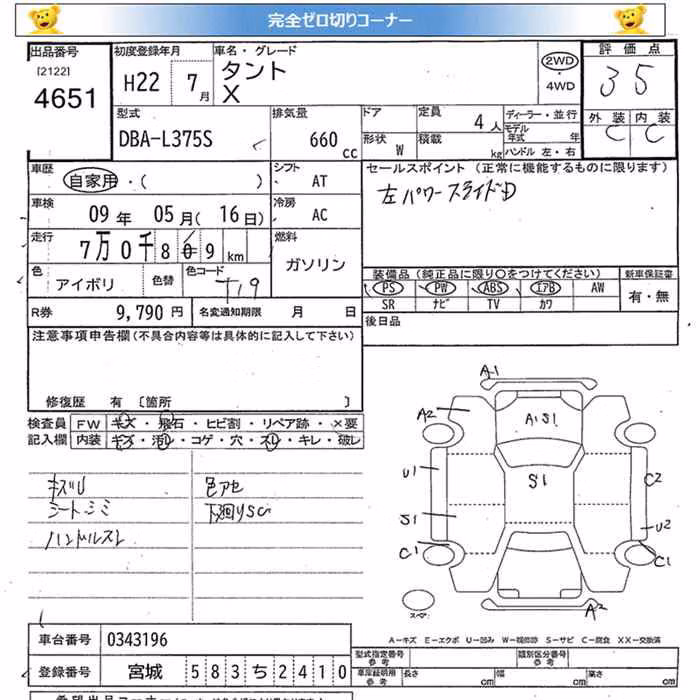 完全ゼロ切りコーナー
出品番号
[2122]
4651
初度登録年月
H22 7月
車名・グレード
タント
X
2WD
・
4WD
評価点
3 5
外装 内装
C C
型式
DBA-L375S
排気量
660 cc
ドア
形状 W
定員 4 人
積載 kg
ディーラー・並行
モデル年式 年
ハンドル 左・右
車歴
自家用・( )
シフト AT
セールスポイント (正常に機能するものに限ります)
左パワースライドD
車検
09 年 05 月( 16 日)
冷房 AC
走行
7万0千809 km
燃料
ガソリン
色 アイボリ
色替
色コード T19
装備品 (純正品に限り○をつけてください)
新車保証書
PS PW ABS エアB AW
SR ナビ TV カワ
有・無
R券 9,790 円
名変通知期限 月 日
後日品
注意事項申告欄(不具合内容等は具体的に記入して下さい)
修復歴 有 〔箇所 〕
検査員記入欄
FW キズ・飛石・ヒビ割・リペア跡・×要
内装 キズ・汚レ・コゲ・穴・スレ・キレ・破レ
キズU
シートシミ
ハンドルスレ
色アセ
下廻りSC
A1
A2
A1 S1
U1
S1
C2
S1
U2
C1
C1
A2
スペア
A-キズ E-エクボ U-凹み W-補修跡 S-サビ C-腐食 XX-交換済
車台番号 0343196
型式指定番号 参考
類別区分番号 参考
登録番号 宮城 583ち2410
車庫証明用 参考
長さ cm
幅 cm
高さ cm